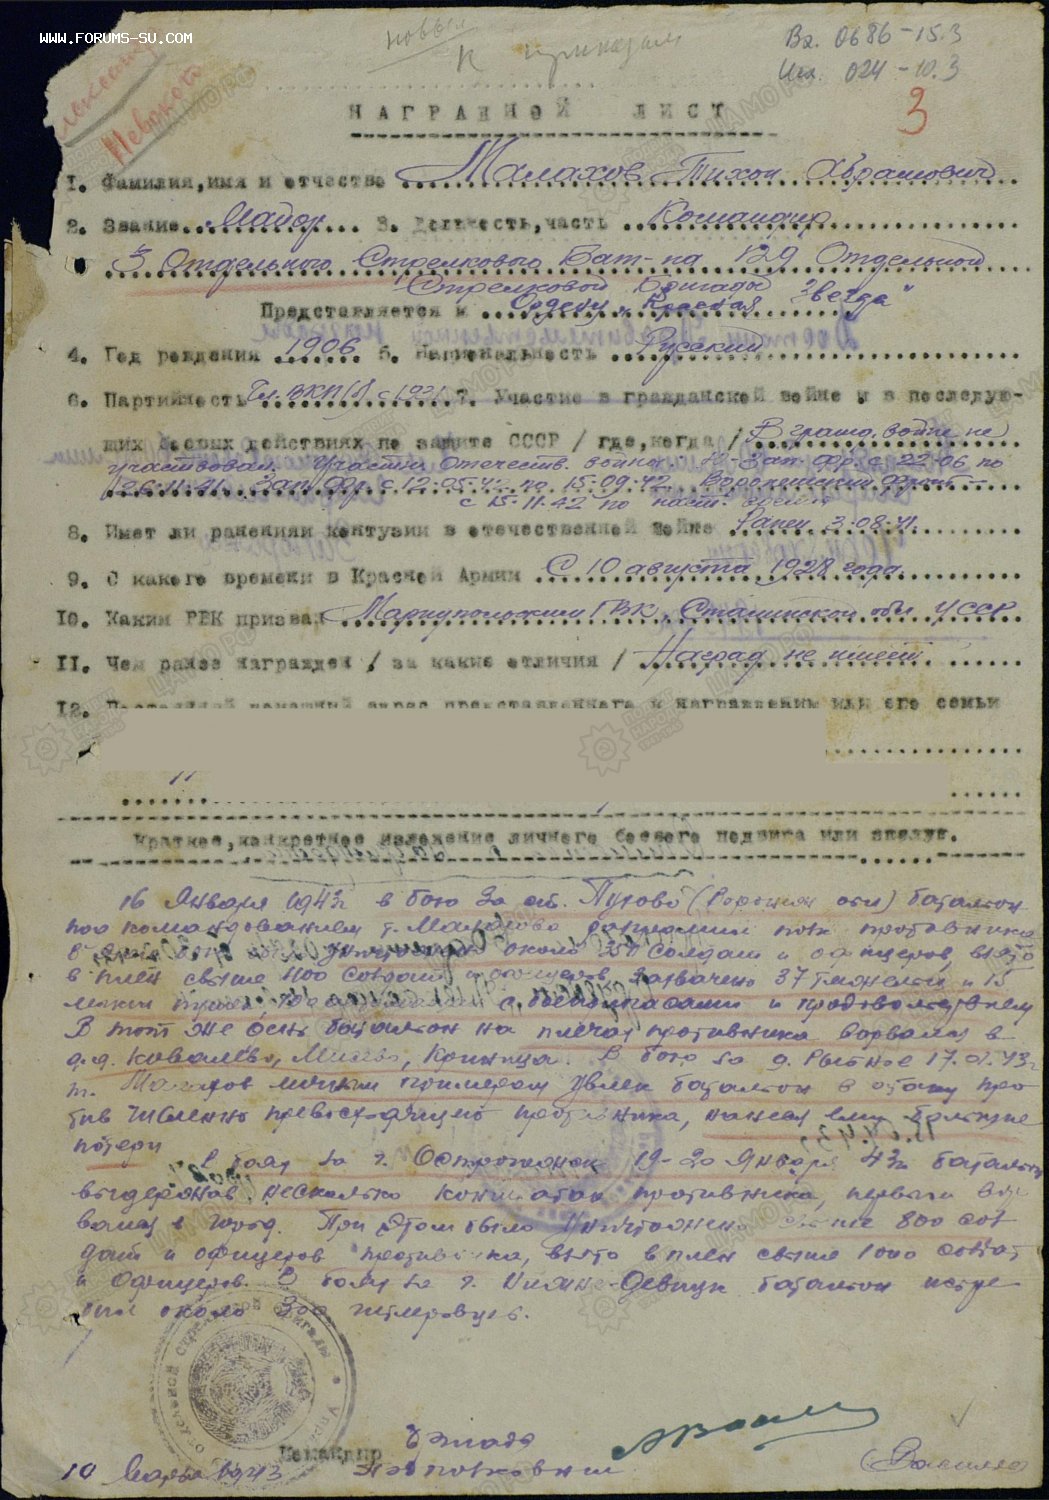 WWW.FORUMS-SU.COM
новый
к приказам
Вх. 0686-15.3
Исх. 024-10.3
3
НАГРАДНОЙ ЛИСТ
1. Фамилия, имя и отчество Малахов Тихон Аврамович
2. Звание Майор 3. Должность, часть Командир
3 Отдельного Стрелкового Бат-на 129 Отдельной
Стрелковой Бригады
Представляется к Ордену "Красная Звезда"
4. Год рождения 1906 5. Национальность Русский
6. Партийность Чл. ВКП(б) с 1931 7. Участие в гражданской войне и в последую-
щих боевых действиях по защите СССР /где, когда/ В гражд. войне не
участвовал. Участн. Отечеств. войны - Ю-Зап. Фр. с 22.06 по
26.11.41. Зап. Фр. с 12.05.42 по 15.09.42. Воронежский фронт -
с 15.11.42 по наст. время
8. Имет ли ранениям контузии в отечественной войне Ранен 3.08.41.
9. С какого времени в Красной Армии С 10 августа 1928 года.
10. Каким РВК призван Мариупольским ГВК, Сталинской обл. УССР
11. Чем ранее награжден /за какие отличия/ Наград не имеет
12. Постоянный домашний адрес представленного к награждению или его семьи
Краткое, конкретное изложение личного боевого подвига или заслуг.
16 Января 1943г в бою за ст. Пухово (Воронеж обл) батальон
под командованием т. Малахова разгромил полк противника
уничтожено около 350 солдат и офицеров, взято
в плен свыше 400 солдат и офицеров, захвачено 37 тяжелых и 15
с боеприпасами и продовольствием
В тот же день батальон на плечах противника ворвался в
д.д. Ковалево, Криница. В бою за д. Рыбное 17.01.43г
т. Малахов личным примером увлек батальон в атаку про
тив численно превосходящего противника, нанеся ему большие
потери
В боях за г. Острогожск 19-20 Января 43г батальон
выдержав несколько контратак противника, первым вор
вался в город. При этом было уничтожено свыше 800 сол
дат и офицеров противника, взято в плен свыше 1000 солдат
и офицеров. В боях за г. Нижне-Девицк батальон истре
бил около 300 гитлеровцев.
Командир бригады
10 Марта 1943 Подполковник